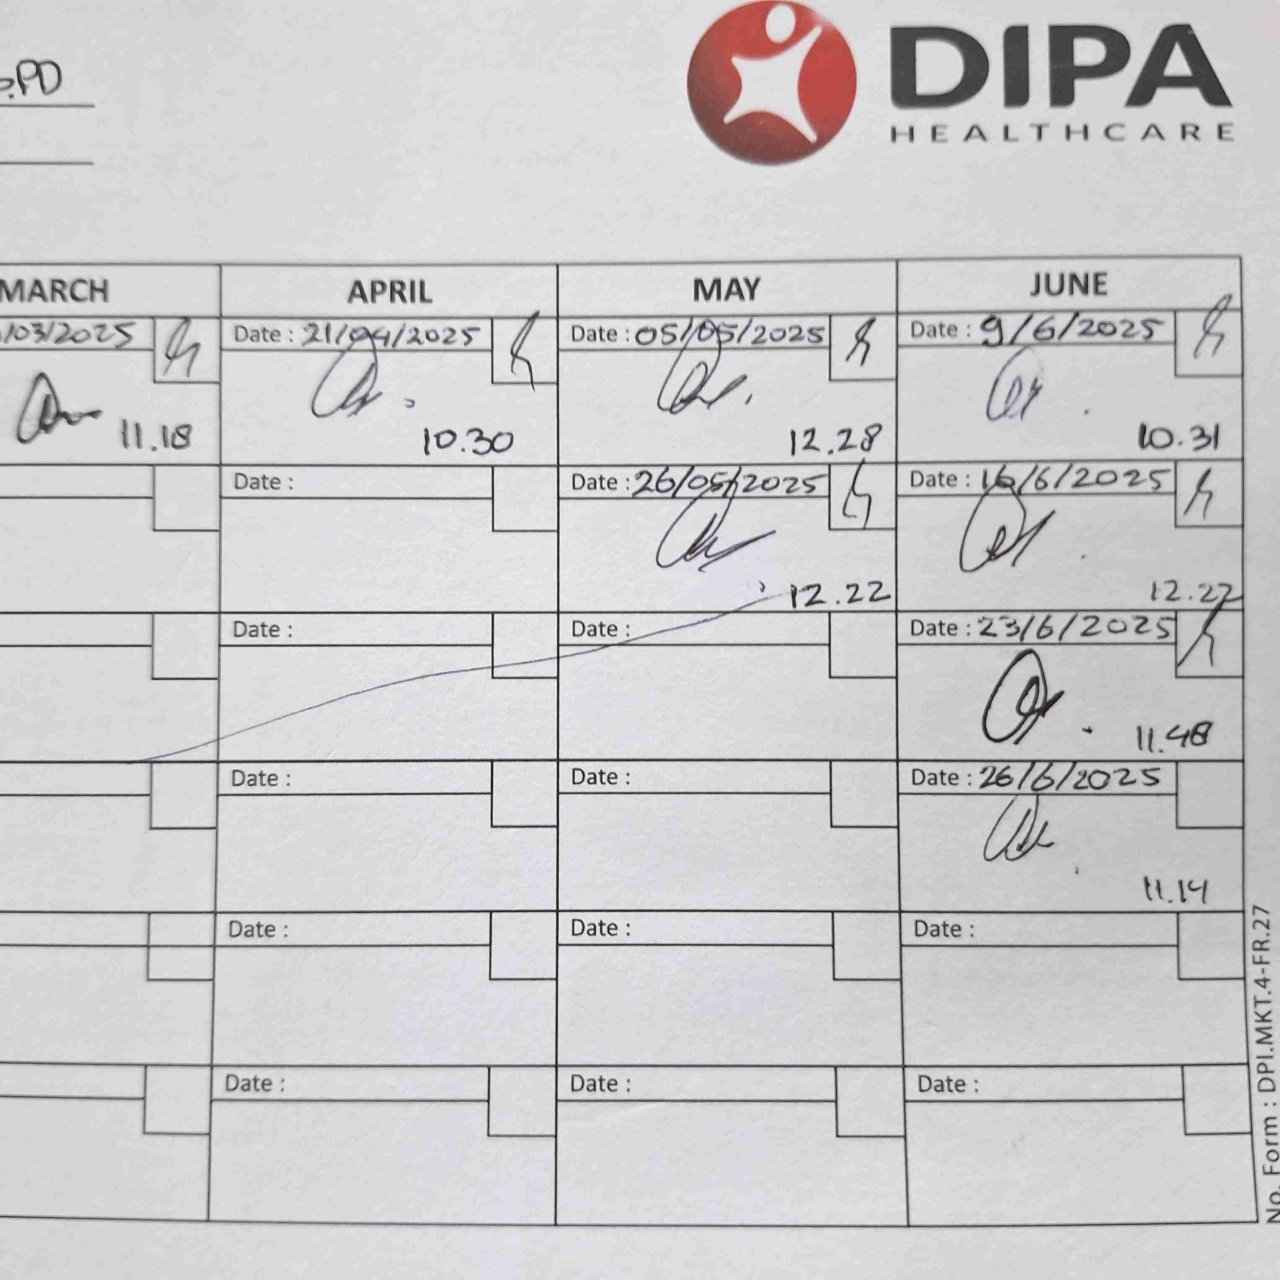 DIPA
HEALTHCARE
.PD
MARCH APRIL MAY JUNE
/03/2025 Date : 21/04/2025 Date : 05/05/2025 Date : 9/6/2025
11.18 10.30 12.28 10.31
Date : Date : 26/05/2025 Date : 16/6/2025
12.22 12.22
Date : Date : Date : 23/6/2025
11.48
Date : Date : Date : 26/6/2025
11.14
Date : Date : Date :
Date : Date : Date :
No. Form : DPI.MKT.4-FR.27